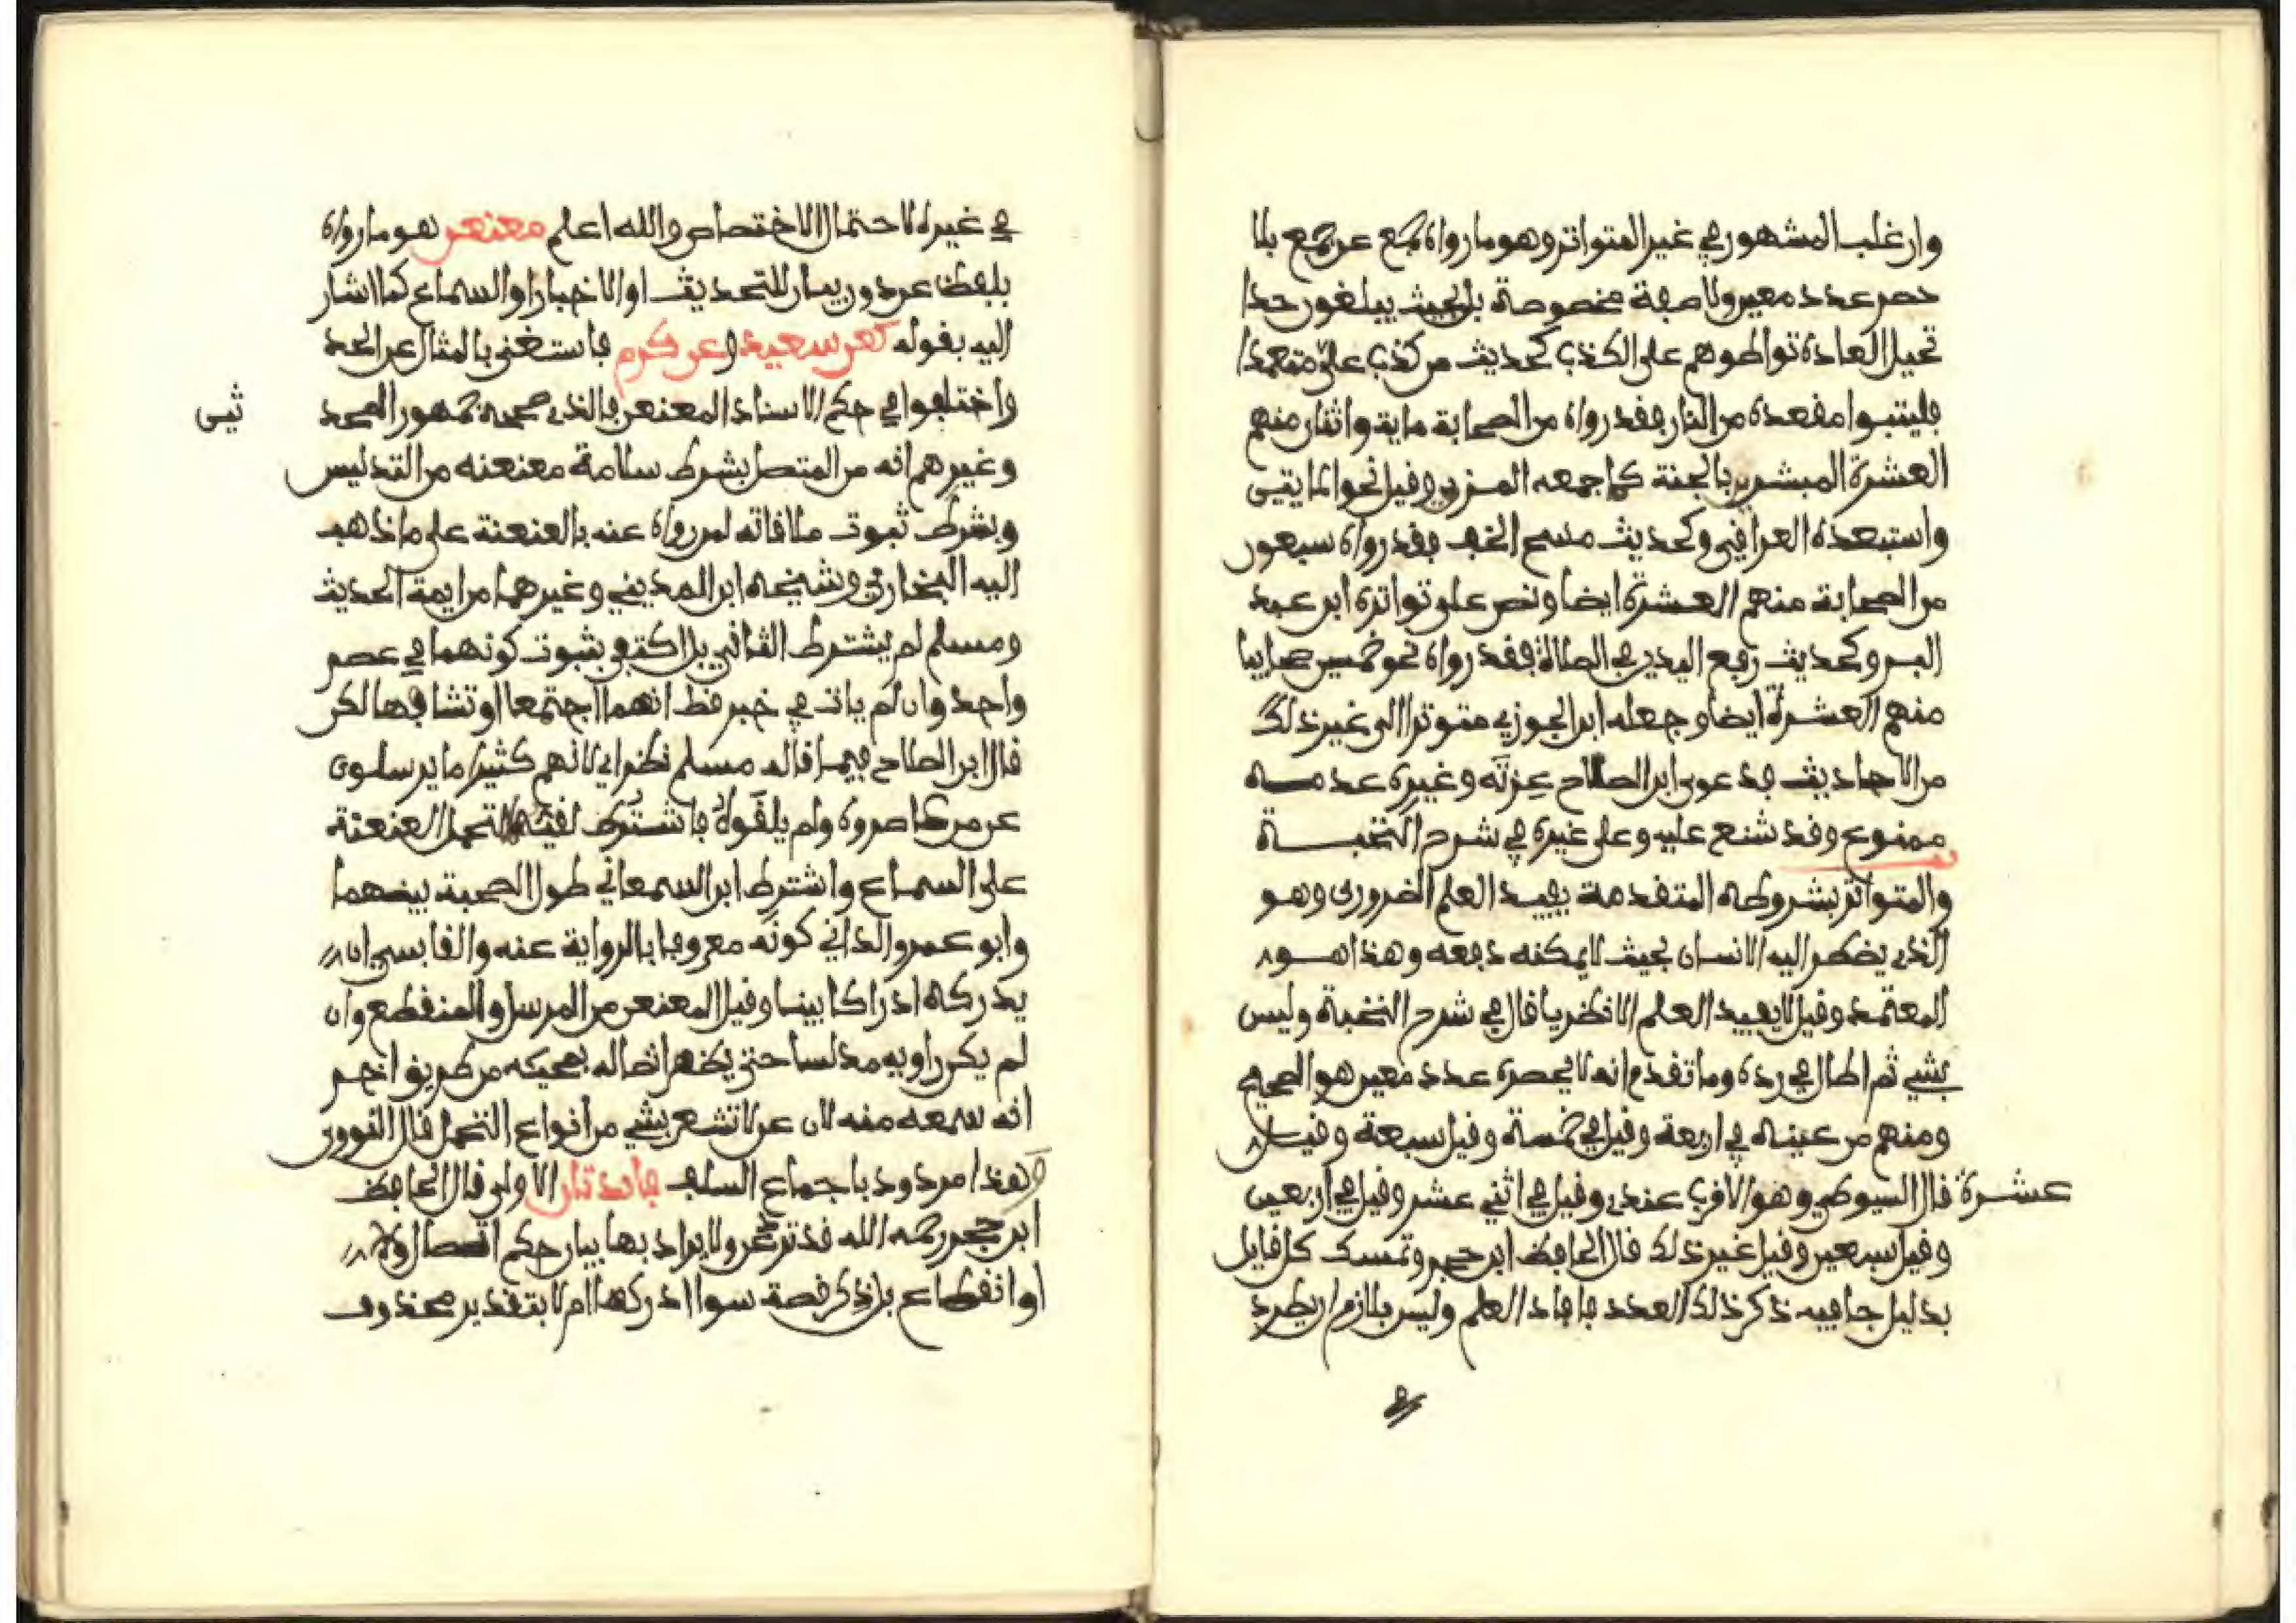 وان غلب المشهور في غير المتواتر وهو ما رواه جمع عن جمع بلا
حصر عدد معين ولا صفة مخصوصة بل بحيث يبلغون حدا
تحيل العادة تواطوهم على الكذب كحديث من كذب علي متعمدا
فليتبوا مقعده من النار فقد رواه من الصحابة ماية واثنان منهم
العشرة المبشرين بالجنة كما جمعه المزي وقيل نحو المايتين
واستبعده العراقي وكحديث مسح الخف فقد رواه سبعون
من الصحابة منهم العشرة ايضا ونص على تواتره ابن عبد
البر وكحديث رفع اليدين في الصلاة فقد رواه نحو خمسين صحابيا
منهم العشرة ايضا وجعله ابن الجوزي متوترا الى غير ذلك
من الاحاديث فدعوى ابن الصلاح عزته وغيره عدمـــه
ممنوع وقد شنع عليه وعلى غيره في شرح النخبـــة
والمتواتر بشروطه المتقدمة يفيد العلم الضروري وهو
الذي يضطر اليه الانسان بحيث لا يمكنه دفعه وهذا هـــو
المعتمد وقيل لا يفيد العلم الا نظريا قال في شرح النخبة وليس
بشي ثم اطال في رده وما تقدم انه لا يحصره عدد معين هو الصحيح
ومنهم من عينه في اربعة وقيل في خمسة وقيل سبعة وقيـل
عشرة قال السيوطي وهو الاقرب عندي وقيل في اثني عشر وقيل في اربعين
وقيل سبعين وقيل غير ذلك قال الحافظ ابن حجر وتمسك كل قايل
بدليل جا فيه ذكر ذلك العدد فافاد العلم وليس بلازم ان يطرد
في غيره لاحتمال الاختصاص والله اعلم معنعن هو ما رواه
بلفظ عن دون بيان للتحديث او الاخبار او السماع كما اشار
اليه بقوله كعن سعيد وعن كرم فاستغنى بالمثال عن الحد
واختلفوا في حكم الاسناد المعنعن فالذي صححه جمهور المحد
ثين
وغيرهم انه من المتصل بشرط سلامة معنعنه من التدليس
وبشرط ثبوت ملاقاته لمن رواه عنه بالعنعنة على ما ذهب
اليه البخاري وشيخه ابن المديني وغيرهما من ايمة الحديث
ومسلم لم يشترط الثاني بل اكتفى بثبوت كونهما في عصر
واحد وان لم يات في خبر قط انهما اجتمعا او تشافها لكن
قال ابن الصلاح فيما قاله مسلم نظر اي لانهم كثيرا ما يرسلون
عن من عاصروه ولم يلقوه فاشترط لقيهما لتحمل العنعنة
على السماع واشترط ابن السمعاني طول الصحبة بينهما
وابو عمرو الداني كونه معروفا بالرواية عنه والقابسي ان
يدركه ادراكا بينا وقيل المعنعن من المرسل والمنقطع وان
لم يكن راويه مدلسا حتى يظهر اتصاله بمجيئه من طريق اخر
انه سمعه منه لان عن لا تشعر بشي من انواع التحمل قال النووي
وهذا مردود باجماع السلف فائدتان الاولى قال الحافظ
ابن حجر رحمه الله قد ترد عن ولا يراد بها بيان حكم اتصال ولا
او انقطاع بل ذكر قصة سوا ادركها ام لا بتقدير محذوف